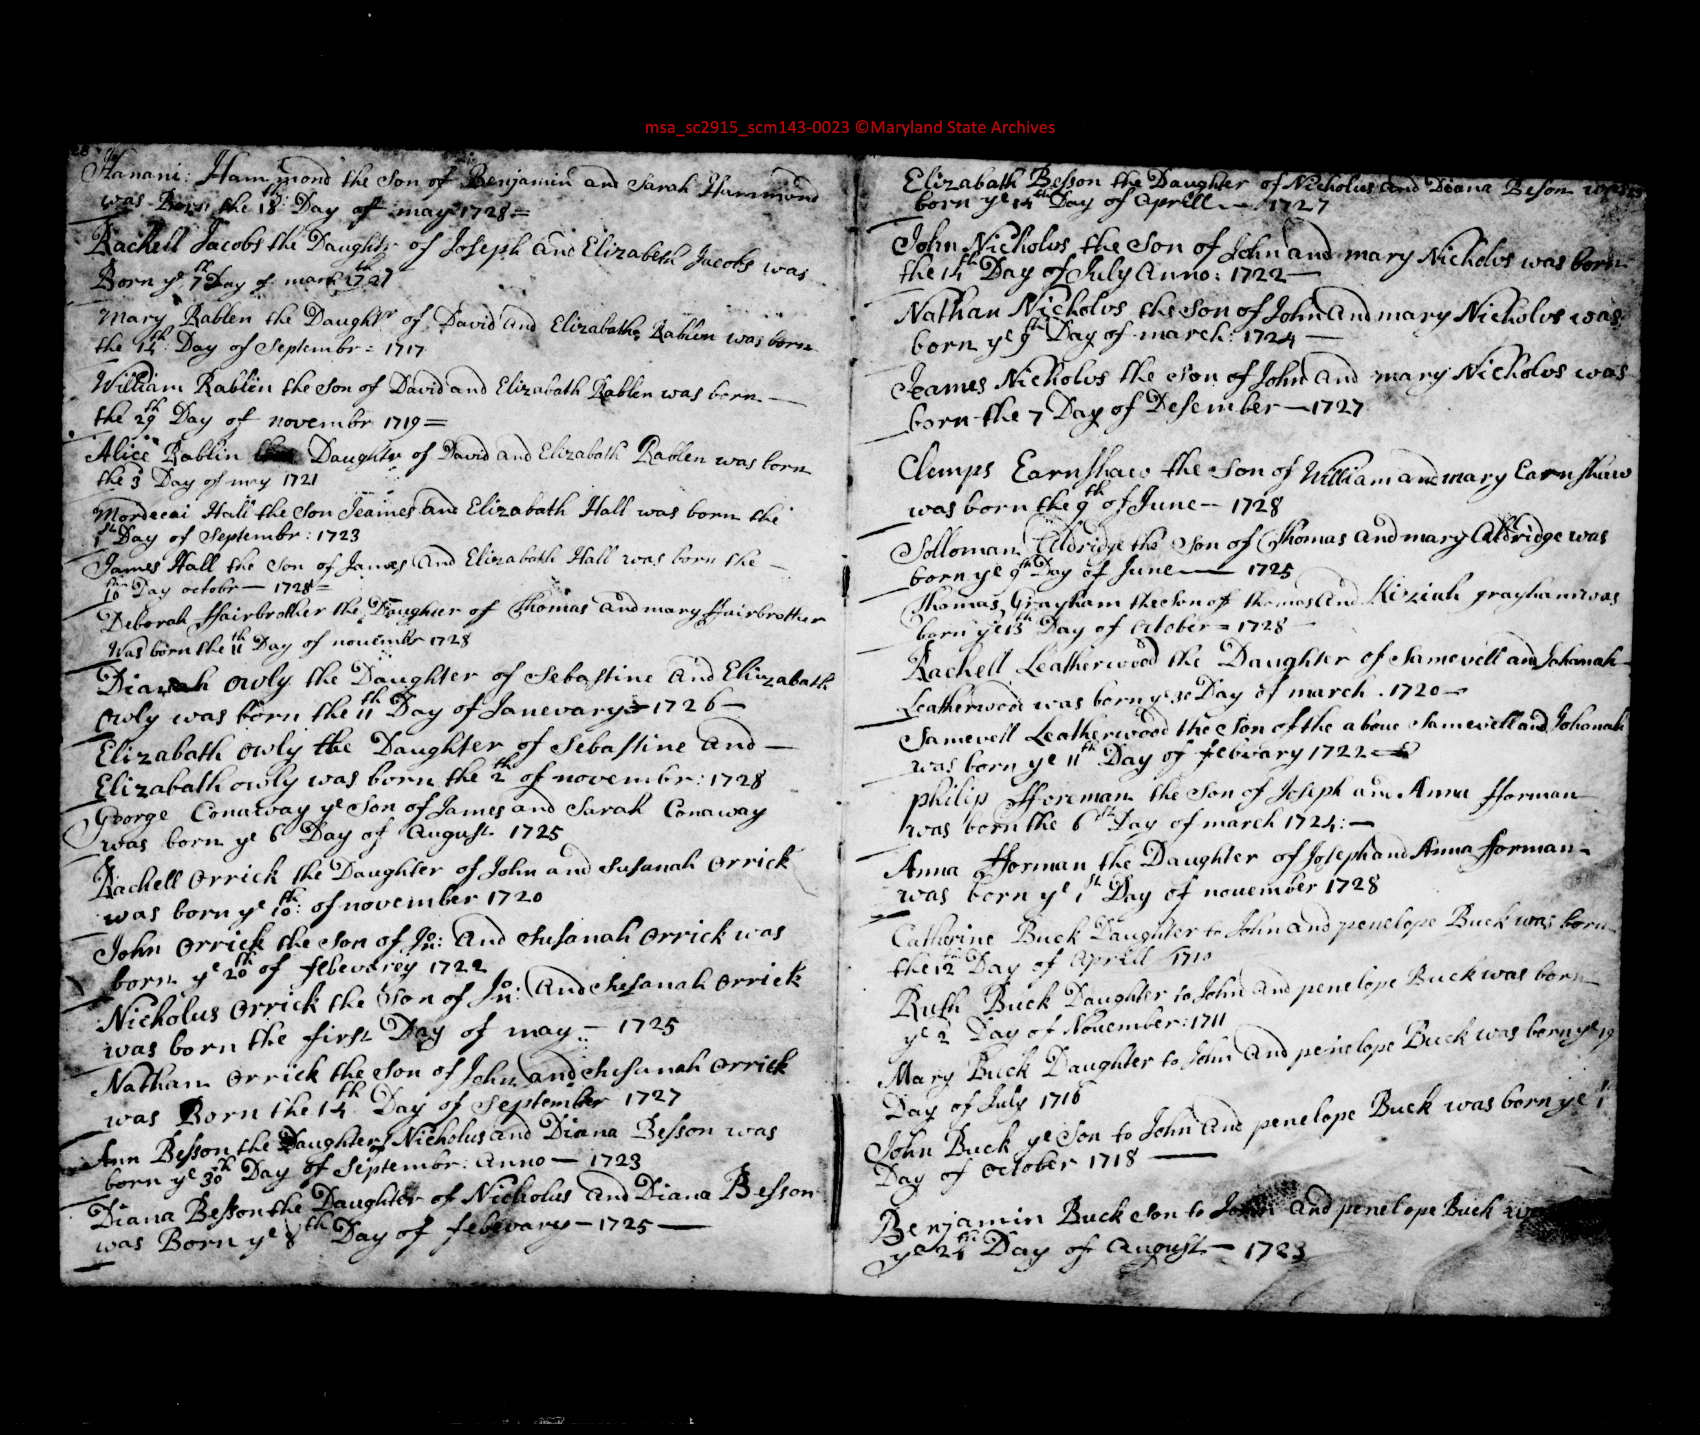 msa_sc2915_scm143-0023 ©Maryland State Archives
Hanani: Hammond the Son of Benjamin and Sarah Hammond
was Born the 18th: Day of may 1728=
Rachell Jacobs the Daughtr of Joseph and Elizabeth Jacobs was
Born ye 7th Day of march 1727
Mary Rablen the Daughtr of David and Elizabath Rablen was born
the 14th: Day of Septembr= 1717
William Rablen the Son of David and Elizabath Rablen was born —
the 29th Day of novembr 1719=
Alice Rablin Daughter of David and Elizabath Rablen was born
the 3 Day of may 1721
Mordecai Hall the Son Jeames and Elizabath Hall was born the
1st Day of Septembr: 1723
James Hall the Son of James and Elizabath Hall was born the —
10th Day octobr — 1728=
Deborah Hairbrother the Daughter of Thomas and mary Hairbrother
Was born the 11th Day of novembr 1728
Dianah Owly the Daughter of Sebastine and Elizabath
Owly was born the 11th Day of Janevary 1726 —
Elizabath Owly the Daughter of Sebastine and —
Elizabath owly was born the 2th of novembr: 1728
George Conaway ye Son of James and Sarah Conaway
was born ye 6th Day of August 1725
Rachell Orrick the Daughter of John and Susanah Orrick
was born ye 10th: of november 1720
John Orrick the Son of Jon: and Susanah Orrick was
born ye 20th of febevarey 1722
Nicholus Orrick the Son of Jon: and Susanah Orrick
was born the first Day of may — 1725
Nathan Orrick the Son of John and Susanah Orrick
was Born the 14th Day of September 1727
Ann Besson the Daughter of Nicholus and Diana Besson was
born ye 30th Day of Septembr: Anno — 1723
Diana Besson the Daughter of Nicholus and Diana Besson
was Born ye 8th Day of febevary — 1725 —
Elizabath Besson the Daughter of Nicholus and Diana Beson was
born ye 14th Day of Aprell — 1727
John Nicholos the Son of John and mary Nicholos was born
the 14th Day of July Anno: 1722 —
Nathan Nicholos the Son of John and mary Nicholos was
born ye 9th Day of march: 1724 —
Jeames Nicholos the Son of John and mary Nicholos was
born the 7 Day of Desember — 1727
Clemps Earnshaw the Son of William and mary Earnshaw
was born the 9th of June — 1728
Solloman Aldridge the Son of Thomas and mary Aldridge was
born ye 9th Day of June — 1725
Thomas Grayham the Son of thomas and Kiziah grayham was
born ye 13th Day of October = 1728 —
Rachell Leatherwood the Daughter of Samevell and Johanah
Leatherwood was born ye 30 Day of march . 1720 —
Samevell Leatherwood the Son of the aboue Samevell and Johanah
was born ye 11th Day of febevary 1722
philip fforeman the Son of Joseph and Anna fforman
was born the 6st Day of march 1724: —
Anna fforman the Daughter of Joseph and Anna fforman —
was born ye 1st Day of nouember 1728
Catherine Buck Daughter to John and penelope Buck was born
the 12th Day of Aprell 1710
Ruth Buck Daughter to John and penelope Buck was born
ye 2 Day of November: 1711
Mary Buck Daughter to John and penelope Buck was born ye 19
Day of July 1716
John Buck ye Son to John and penelope Buck was born ye 1st
Day of October 1718 —
Benjamin Buck Son to John and penelope Buck
ye 24th Day of August — 1723